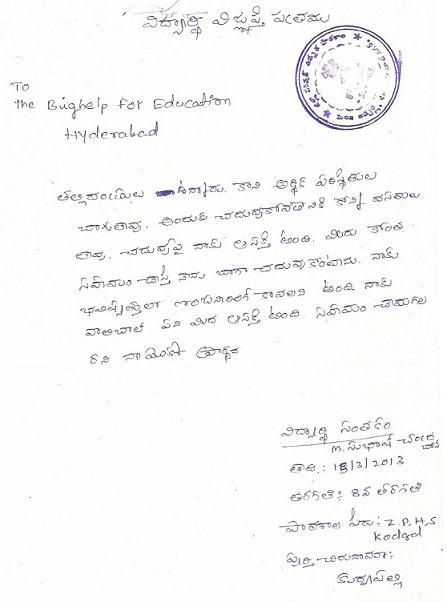 విద్యార్థి విజ్ఞప్తి పత్రము
To
the Bighelp for Education
Hyderabad
తల్లిదండ్రులు ఉన్నారు. కాని ఆర్థిక పరిస్థితులు
బాగులేవు. అందుకు చదువుకోవడానికి కొన్ని వసతులు
లేవు. చదువుపై నాకు ఆసక్తి ఉంది. మీరు కొంత
సహాయం చేస్తే నేను బాగా చదువుకుంటాను. నాకు
భవిష్యత్తులో కావలని ఉంది. నాకు
వాలీబాల్ మీద ఆసక్తి ఉంది. సహాయం చేయగల
రని నా యొక్క ప్రార్థన
విద్యార్థి సంతకం
M. సుభాష్ చంద్ర
తేది: 18/3/2013
తరగతి: 8వ తరగతి
పాఠశాల పేరు: Z.P.H.S
Kodad
పూర్తి చిరునామా: